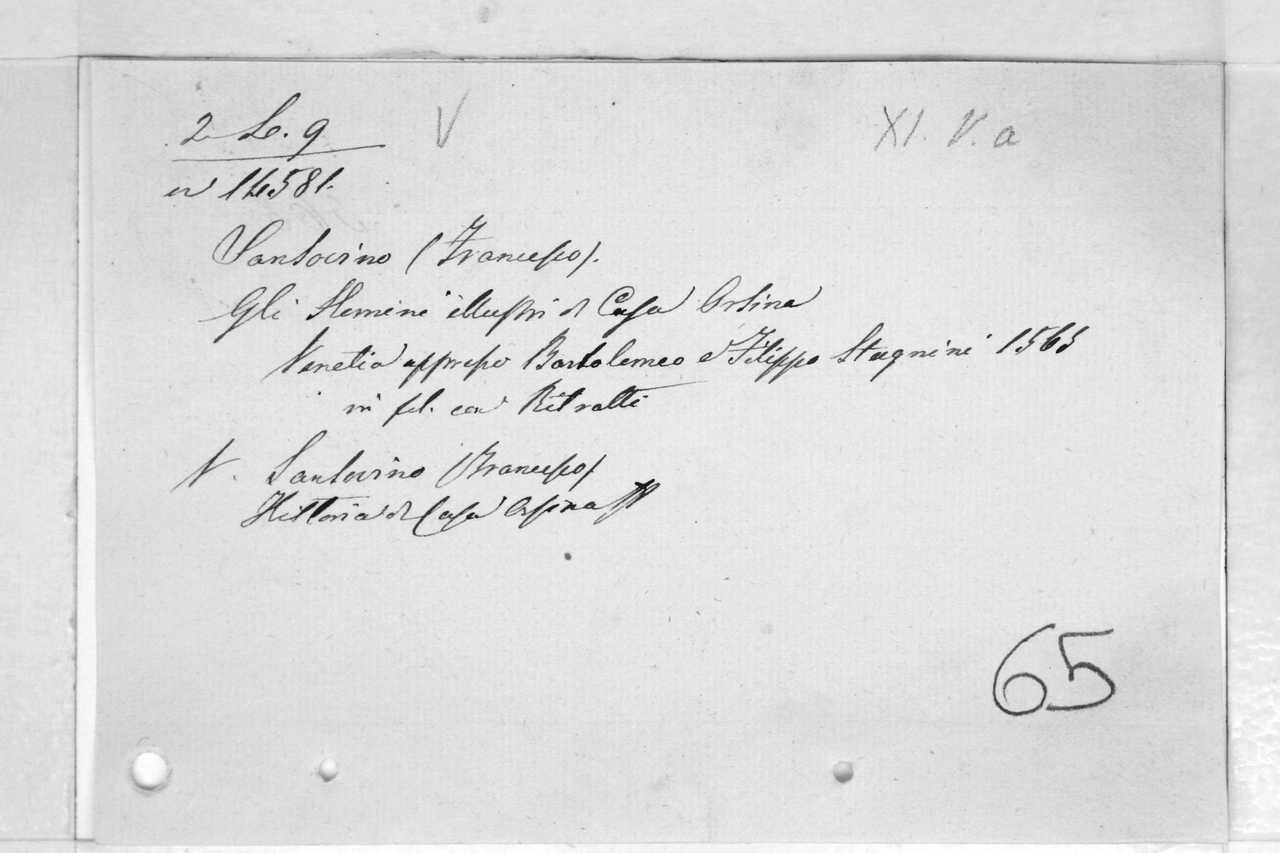 2 L. 9 V XI. V. a
in 14581.
Sansovino (Francesco).
Gli Homini illustri di Casa Orsina
Venetia appresso Bartolomeo e Filippo Stagnini 1565
in fol. con Ritratti
V. Sansovino (Francesco)
Historia di Casa Orsina
65